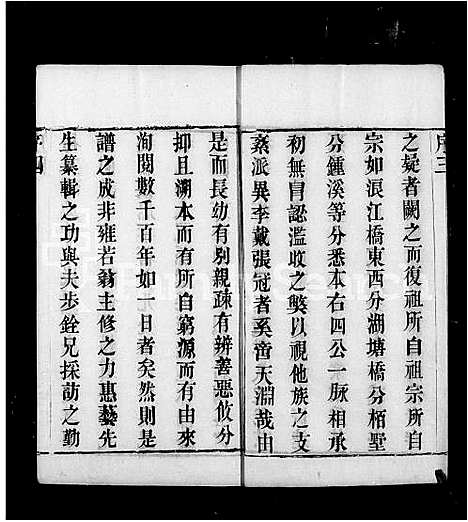 序三
之疑者闕之而復祖所自祖宗所自
宗如浪江橋東西分湖塘橋分栢墅
分鍾溪等分悉本右四公一脉相承
初無冒認濫收之獘以視他族之支
紊派異李戴張冠者奚啻天淵哉由
是而長幼有別親疎有辨善惡攸分
抑且溯本而有所自窮源而有由來
洵閱數千百年如一日者矣然則是
譜之成非雍若翁主修之力惠藝先
生纂輯之功與夫步銓兄採訪之勤
序四